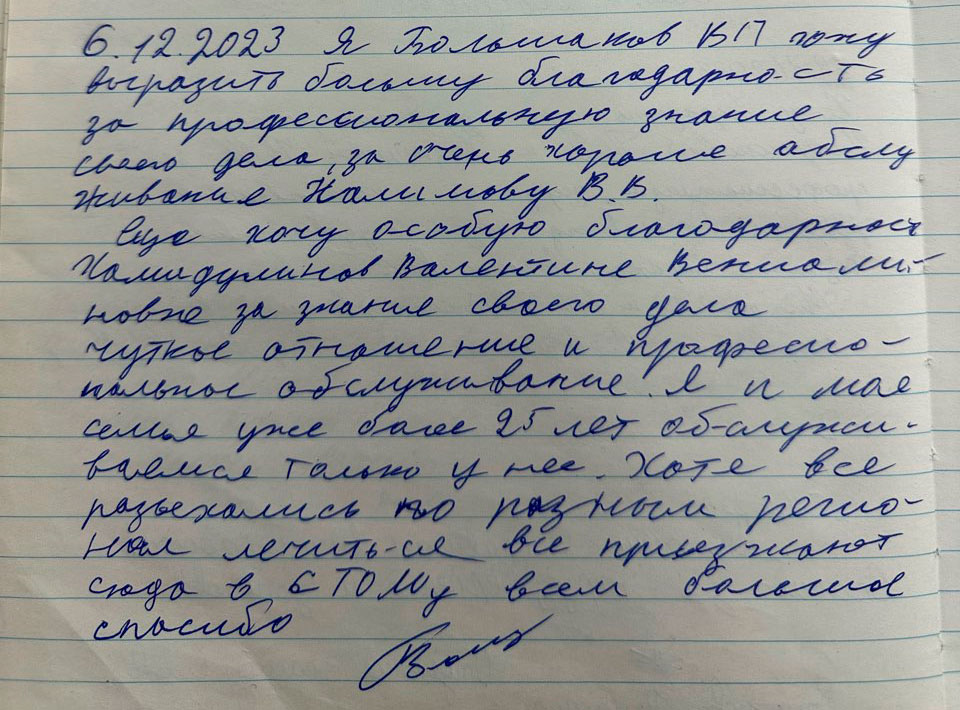 6.12.2023 Я Большаков ВП хочу
выразить большу благодарность
за профессиональную знание
своего дела, за очень хороше абслу
живание Халимову В.В.
Еще хочу особую благодарност
Хамидулинов Валентине Вениами-
новне за знание своего дела
чуткое отношение и професио-
нальное обслуживание. Я и мае
семья уже более 25 лет обслужи-
ваемся только у нее. Хоте все
разьехались по разным регио-
нам лечиться все приезжают
сюда в всем большое
спосибо